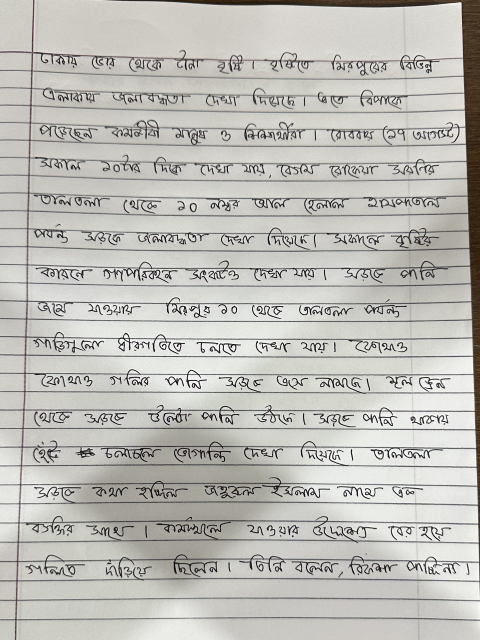 ঢাকায় ভোর থেকে টানা বৃষ্টি। বৃষ্টিতে মিরপুরের বিভিন্ন
এলাকায় জলাবদ্ধতা দেখা দিয়েছে। এতে বিপাকে
পড়েছেন কর্মজীবী মানুষ ও শিক্ষার্থীরা। রোববার (২৭ আগস্ট)
সকাল ১০টার দিকে দেখা যায়, বেগম রোকেয়া সরণির
তালতলা থেকে ১০ নম্বর আল হেলাল হাসপাতাল
পর্যন্ত সড়কে জলাবদ্ধতা দেখা দিয়েছে। সকালে বৃষ্টির
কারনে গণপরিবহন সংকটও দেখা যায়। সড়কে পানি
জমে যাওয়ায় মিরপুর ১০ থেকে তালতলা পর্যন্ত
গাড়িগুলো ধীরগতিতে চলতে দেখা যায়। কোথাও
কোথাও গলির পানি সড়কে এসে নামছে। মূল ড্রেন
থেকে সড়কে উল্টো পানি উঠছে। সড়কে পানি থাকায়
হেঁটে চলাচলে ভোগান্তি দেখা দিয়েছে। তালতলা
সড়কে কথা হচ্ছিল জহুরুল ইসলাম নামে এক
ব্যক্তির সাথে। কর্মস্থলে যাওয়ার উদ্দেশ্যে বের হয়ে
গলিতে দাঁড়িয়ে ছিলেন। তিনি বলেন, রিকশা পাচ্ছিনা।